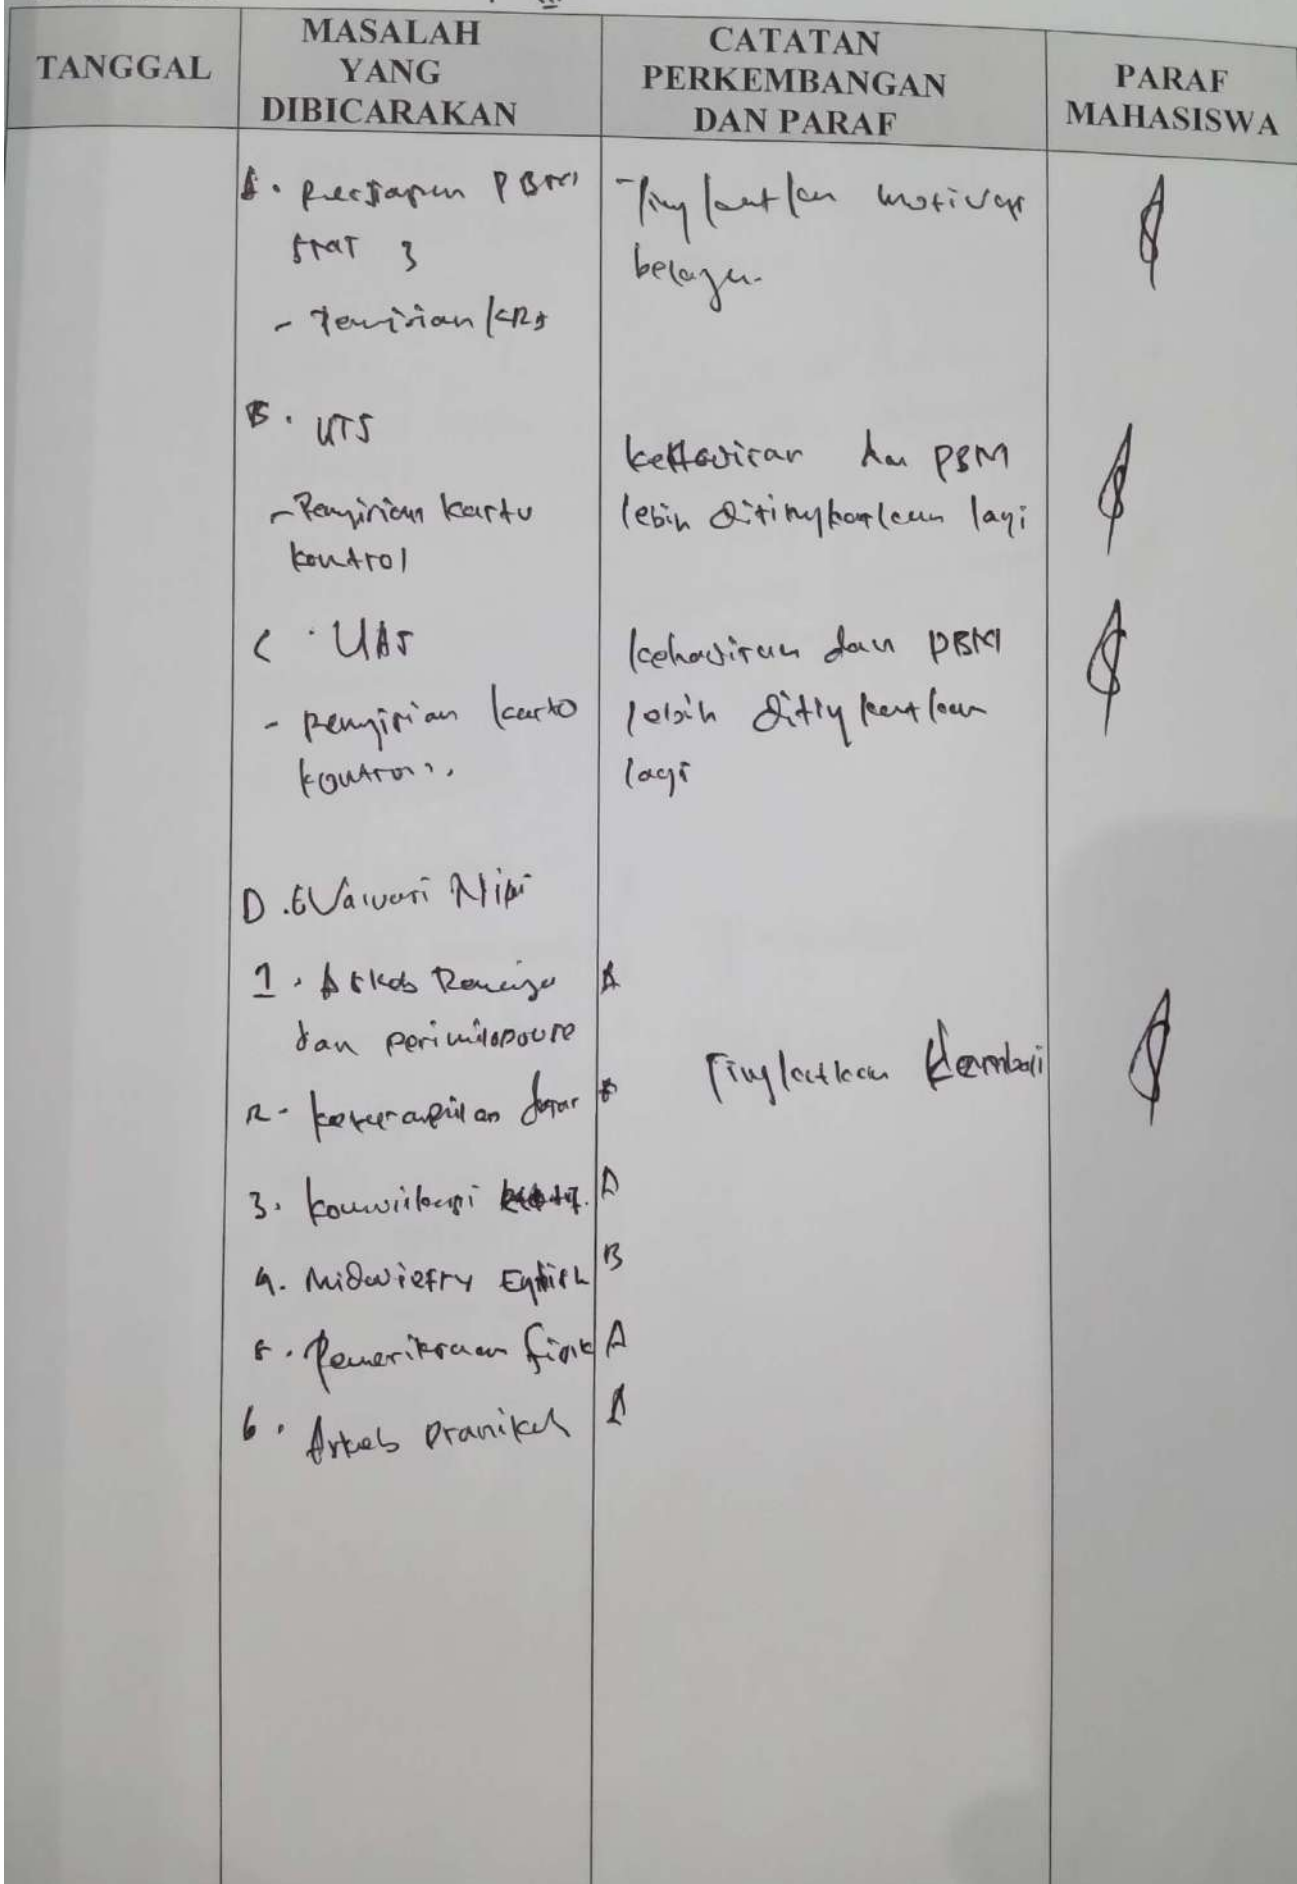 TANGGAL
MASALAH
YANG
DIBICARAKAN
CATATAN
PERKEMBANGAN
DAN PARAF
PARAF
MAHASISWA
A. Persiapan PBM
3
- Pengisian KRS
- Tingkatkan motivasi
belajar
B. UTS
- Pengisian kartu
kontrol
kehadiran dan PBM
lebih ditingkatkan lagi
C. UAS
- pengisian kartu
kontrol
kehadiran dan PBM
lebih ditingkatkan
lagi
D. Evaluasi
1. Askeb Remaja A
dan
2. keterampilan dasar
Tingkatkan kembali
3. komunikasi
4. Midwiefry B
5. Pemeriksaan fisik A
6. Askeb Pranikah A